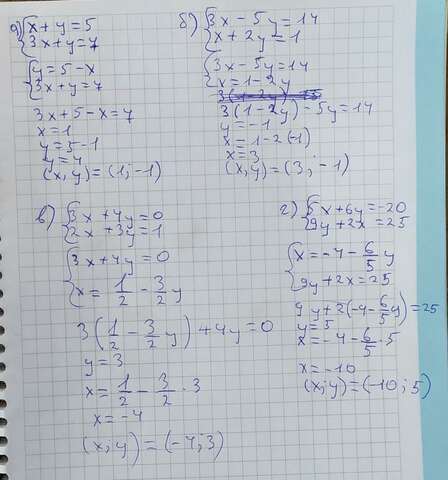 а) { x + y = 5
3x + y = 7
{ y = 5 - x
3x + y = 7
3x + 5 - x = 7
x = 1
y = 5 - 1
y = 4
(x, y) = (1; -1)
б) { 3x - 5y = 14
x + 2y = 1
{ 3x - 5y = 14
x = 1 - 2y
3(1 - 2y) - 5y = 14
y = -1
x = 1 - 2(-1)
x = 3
(x, y) = (3; -1)
в) { 3x + 4y = 0
2x + 3y = 1
{ 3x + 4y = 0
x = 1/2 - 3/2 y
3(1/2 - 3/2 y) + 4y = 0
y = 3
x = 1/2 - 3/2 · 3
x = -4
(x, y) = (-4; 3)
г) { 5x + 6y = -20
9y + 2x = 25
{ x = -4 - 6/5 y
9y + 2x = 25
9y + 2(-4 - 6/5 y) = 25
y = 5
x = -4 - 6/5 · 5
x = -10
(x; y) = (-10; 5)